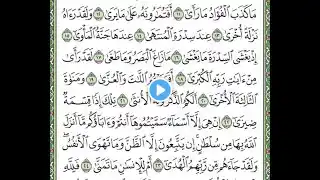 مَا كَذَبَ الْفُؤَادُ مَا رَأَىٰ ١١ أَفَتُمَارُونَهُ عَلَىٰ مَا يَرَىٰ ١٢ وَلَقَدْ رَآهُ
نَزْلَةً أُخْرَىٰ ١٣ عِندَ سِدْرَةِ الْمُنتَهَىٰ ١٤ عِندَهَا جَنَّةُ الْمَأْوَىٰ ١٥
إِذْ يَغْشَى السِّدْرَةَ مَا يَغْشَىٰ ١٦ مَا زَاغَ الْبَصَرُ وَمَا طَغَىٰ ١٧ لَقَدْ رَأَىٰ
مِنْ آيَاتِ رَبِّهِ الْكُبْرَىٰ ١٨ أَفَرَأَيْتُمُ اللَّاتَ وَالْعُزَّىٰ ١٩ وَمَنَاةَ
الثَّالِثَةَ الْأُخْرَىٰ ٢٠ أَلَكُمُ الذَّكَرُ وَلَهُ الْأُنثَىٰ ٢١ تِلْكَ إِذًا قِسْمَةٌ
ضِيزَىٰ ٢٢ إِنْ هِيَ إِلَّا أَسْمَاءٌ سَمَّيْتُمُوهَا أَنتُمْ وَآبَاؤُكُم مَّا أَنزَلَ
اللَّهُ بِهَا مِن سُلْطَانٍ إِن يَتَّبِعُونَ إِلَّا الظَّنَّ وَمَا تَهْوَى الْأَنفُسُ
وَلَقَدْ جَاءَهُم مِّن رَّبِّهِمُ الْهُدَىٰ ٢٣ أَمْ لِلْإِنسَانِ مَا تَمَنَّىٰ ٢٤ فَلِلَّهِ